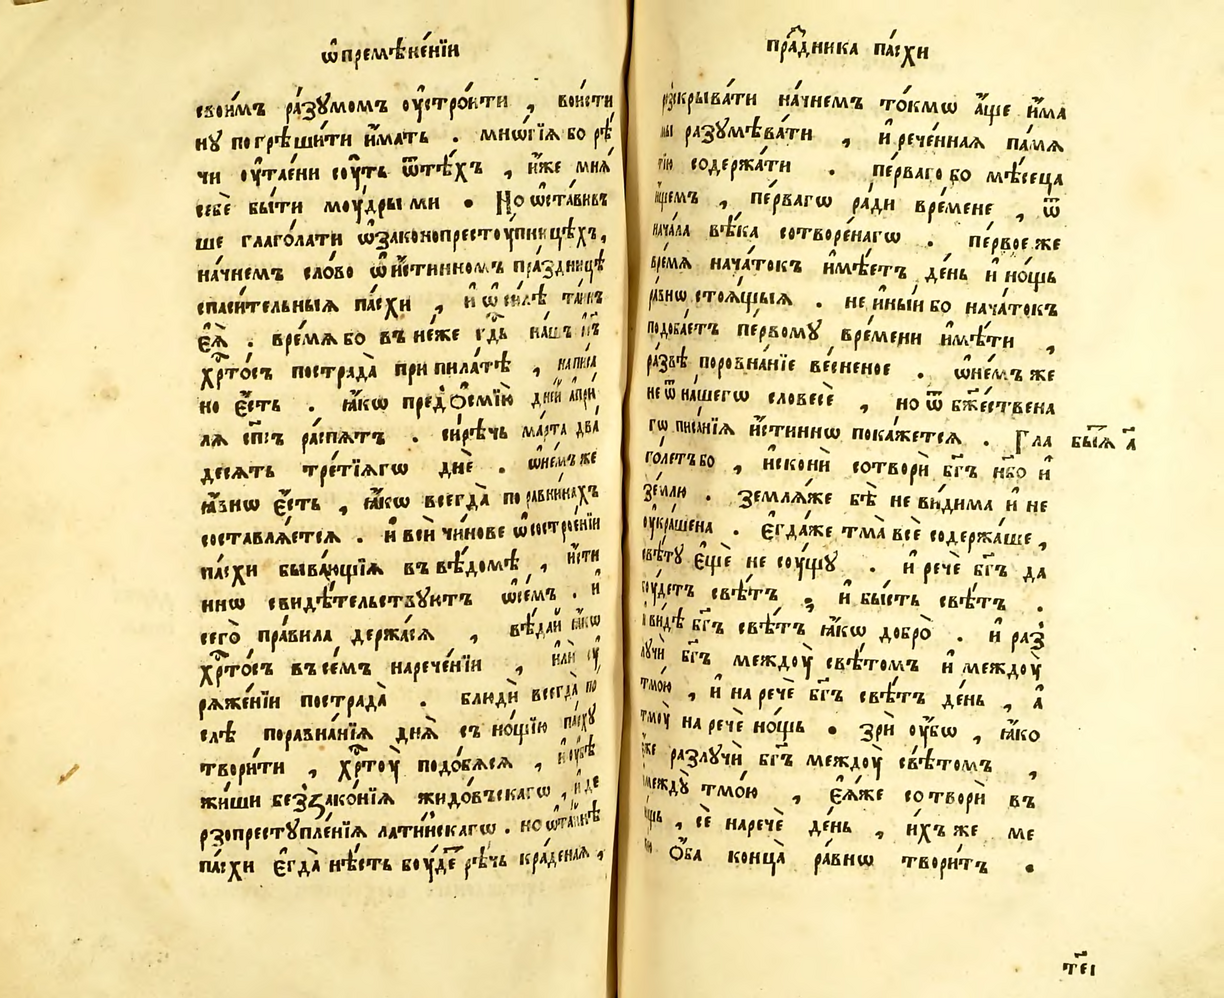 ѡ҆премѣне́нїи
свои́мъ ра́зꙋмомъ оу҆стро́ити , вои́сти
нꙋ погрѣши́ти и҆́мать . мнѡ́гїѧ бо рѣ́
чи оу҆та́ени сꙋ́ть ѿтѣ́хъ , и҆́же мнѧ́
себѐ бы́ти моу́дрыми • Но ѡ҆ста́вивъ
ше глаго́лати ѡ҆законопрестоу́пницѣхъ,
на́чнемъ сло́во ѡ҆ и҆́стинномъ пра́здницѣ
спаси́тельныѧ па́схи , и҆ ѡ҆ си́лѣ та́инъ
є҆ѧ̀ . вре́мѧ бо въ не́же гдⷭ҇ь на́шъ і҆с҃ъ
хрⷭ҇то́съ пострада̀ при пила́тѣ , написа
но є҆́сть . ꙗ҆́кѡ пред̾ ѻ҆смїю̀ дне́й а҆при́
лѧ сп҃съ ра́спѧтъ . си́рѣчь ма́рта два́
десѧть тре́тїѧгѡ днѐ . ѡ҆не́мъ же
ꙗ҆́внѡ є҆́сть , ꙗ҆́кѡ всегда̀ по ра́внинахъ
составлѧ́етсѧ . и҆ вси̑ чи́нове ѡ҆ состроє́нїи
па́схи быва́ющїѧ въ вѣ́домѣ , и҆́сти
ннѡ свидѣ́тельствꙋютъ ѡ҆се́мъ . и҆
сего̀ пра́вила держа́сѧ , вѣ́дай ꙗ҆́кѡ
хрⷭ҇то́съ въ се́мъ нарече́нїи , и҆лѝ сꙋ
рѧже́нїи пострада̀ . блюдѝ всегда̀ по
слѣ поравна́нїѧ днѧ̀ съ но́щїю па́схꙋ
твори́ти , хрⷭ҇тоу̀ подо́бѧсѧ , и҆ оу҆бѣ
жи́ши без̾зако́нїѧ жидо́въскагѡ , и҆ де
рзопрестꙋпле́нїѧ лати́йскагѡ . но ѡ҆ та́инѣ
па́схи є҆гда̀ нѣ́сть боу́детⷭ рѣ́чь кра́деная ,
пра́здника па́схи
раскрыва́ти на́чнемъ то́кмѡ а҆́ще и҆́ма
мы разꙋмѣва́ти , и҆ рече́нная па́мѧ
тїю содержа́ти . пе́рваго бо мѣ́сеца
и҆́щемъ , пе́рвагѡ ра́ди вре́мене , ѿ
нача́ла вѣ́ка сотворе́нагѡ . пе́рвое же
вре́мѧ нача́токъ и҆мѣ́етъ де́нь и҆ но́щь
ра́внѡ стоѧ́щыѧ . не и҆ны́й бо нача́токъ
подоба́етъ пе́рвомꙋ вре́мени и҆мѣ́ти ,
ра́звѣ поровна́нїе ве́сненое . ѡ҆не́мъ же
не ѿ на́шегѡ словесѐ , но ѿ бж҃е́ствена
гѡ писа́нїѧ и҆́стиннѡ пока́жетсѧ . Гла бытїѧ̀ а҃
го́летъ бо , и҆сконѝ сотворѝ бг҃ъ нб҃о и҆
зе́млю . землѧ́же бѣ̀ неви́дима и҆ не
оу҆кра́шена . є҆гда́же тма̀ всѐ содержа́ше ,
свѣ́тꙋ є҆щѐ не соу́щꙋ . и҆ речѐ бг҃ъ да
боу́детъ свѣ́тъ , и҆ бы́сть свѣ́тъ .
и҆ ви́дѣ бг҃ъ свѣ́тъ ꙗ҆́кѡ добро̀ . и҆ раз̾
лꙋчѝ бг҃ъ междоу̀ свѣ́томъ и҆ междоу̀
тмо́ю , и҆ наречѐ бг҃ъ свѣ́тъ де́нь , а҆
тмоу̀ наречѐ но́щь • Зрѝ оу҆́бѡ , ꙗ҆́ко
є҆́же разлꙋчѝ бг҃ъ междоу̀ свѣ́томъ ,
и҆ междꙋ̀ тмо́ю , є҆ѧ́же сотворѝ въ
но́щь , сѐ наречѐ де́нь , и҆́хъ же ме
жи ѻ҆́ба конца̀ ра́внѡ твори́тъ •
т҃еі